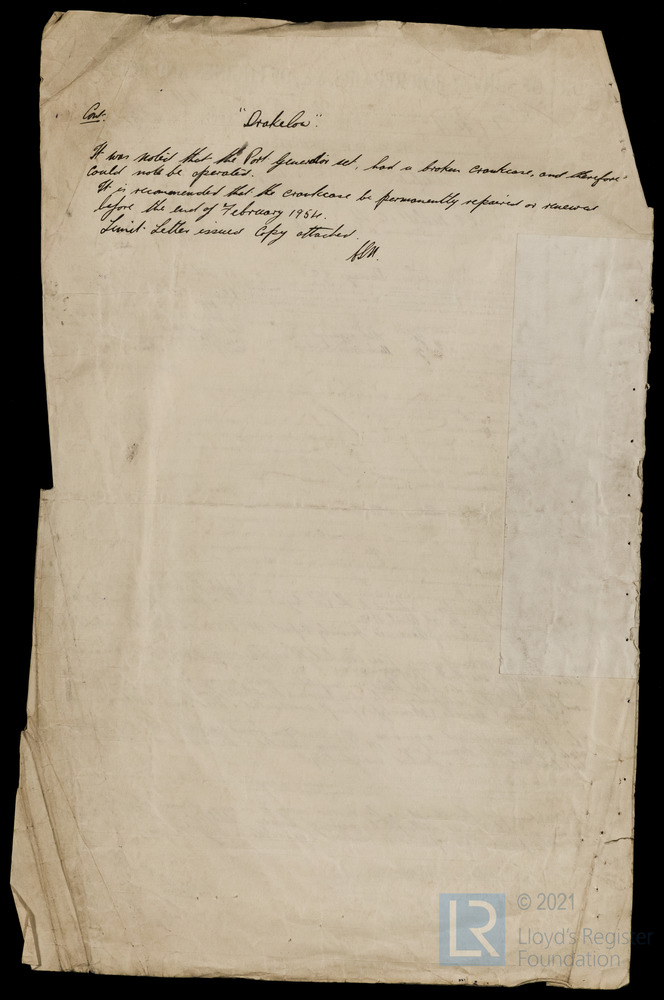 Cont.
"Drakelow".
It was noted that the Port Generator set, had a broken crankcase, and therefore
could note be operated.
It is recommended that the crankcase be permanently repaired or renewed
before the end of February 1954.
Limit Letter issued Copy attached.
LR
© 2021
Lloyd's Register
Foundation